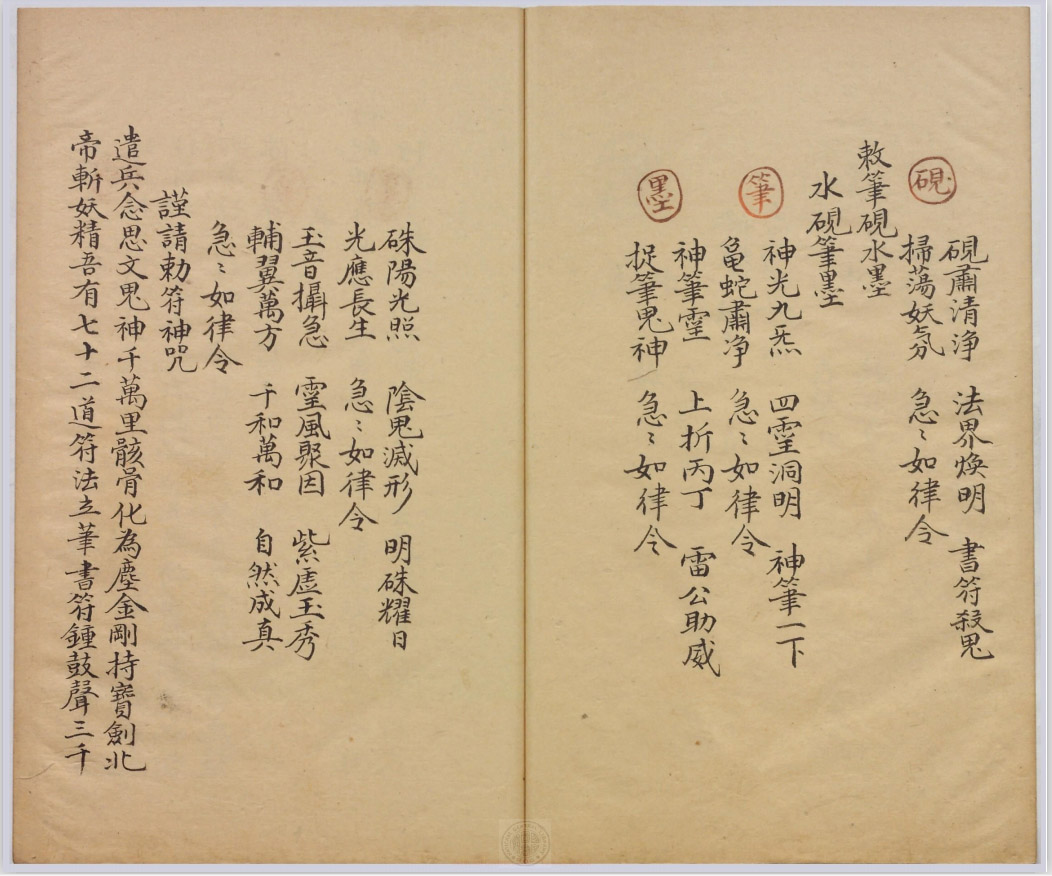 硯肅清淨 法界煥明 書符殺鬼
硯
掃蕩妖氛 急〻如律令
敕筆硯水墨
水硯筆墨
神光九炁 四靈洞明 神筆一下
筆
龜蛇肅净 急〻如律令
神筆靈 上折丙丁 雷公助威
墨
捉筆鬼神 急〻如律令
硃陽光照 陰鬼滅形 明硃耀日
光應長生 急〻如律令
玉音攝急 靈風聚因 紫虛玉秀
輔翼萬方 千和萬和 自然成真
急〻如律令
謹請勅符神咒
遣兵念思文鬼神千萬里骸骨化為塵金剛持寶劍北
帝斬妖精吾有七十二道符法立筆書符鍾鼓聲三千